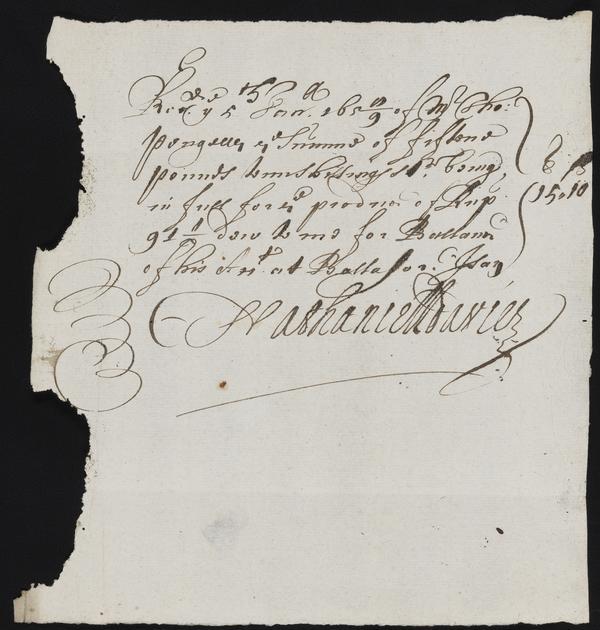 Recd ye 5th Jan. 168 8/9 of Mr Tho:
Pengelly ye Summe of fifteene
pounds tenn shillings str. being
in full for ye produce of Rup
91 1/2 dew to me for Ballance
of his Acct. at Ballasor. I say
£ s
15 10
Nathaniell Davies